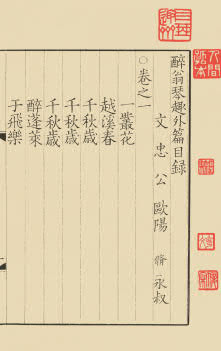 醉翁琴趣外篇目錄
文忠公歐陽脩永叔
○卷之一
一叢花
越溪春
千秋歲
千秋歲
千秋歲
醉蓬萊
于飛樂
人間
詞本